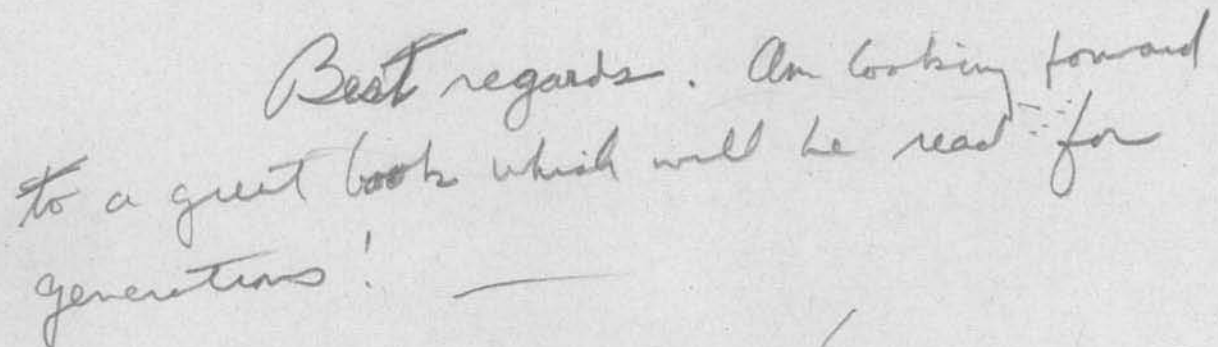 Best regards. Am looking forward
to a great book which will be read for
generations! —